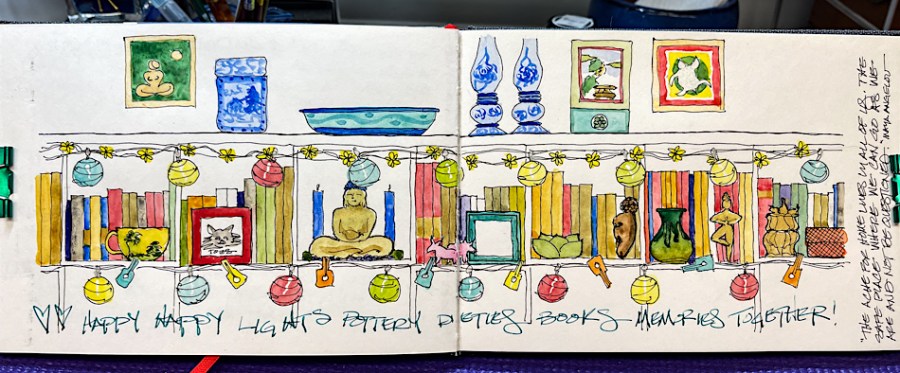 ♡♡ HAPPY HAPPY LIGHTS POTTERY DIETIES BOOKS MEMORIES TOGETHER!
"THE ACHE FOR HOME LIVES IN ALL OF US. THE
SAFE PLACE WHERE WE CAN GO AS WE
ARE AND NOT BE QUESTIONED." MAYA ANGELOU